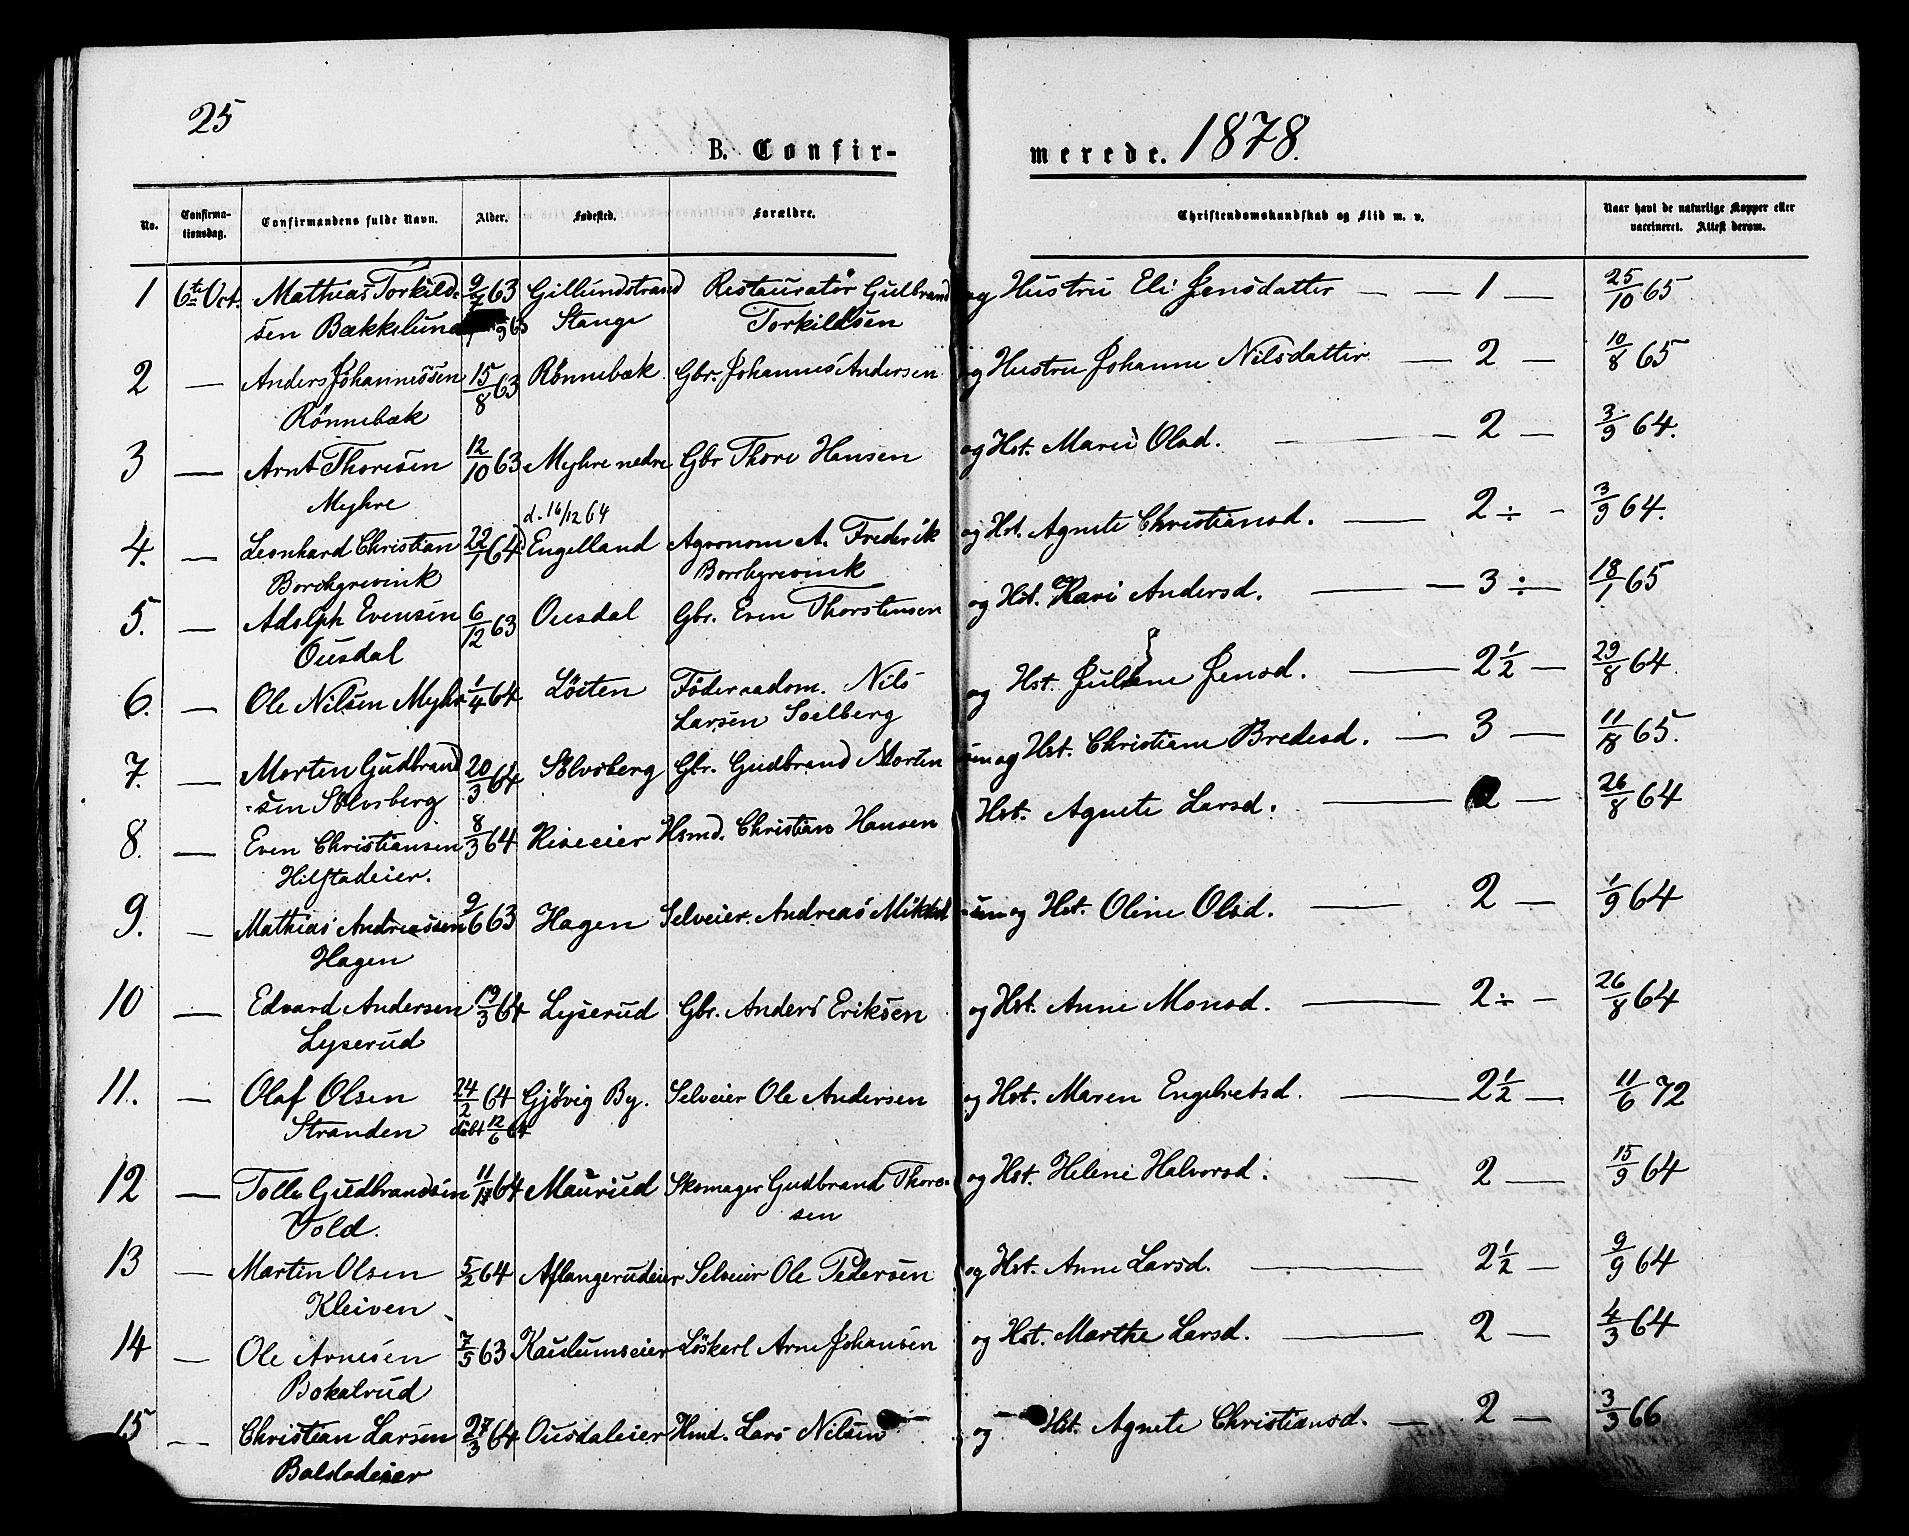 25
B. Confir-
merede. 1878.
No.
Confirma-
tionsdag.
Confirmandens fulde Navn.
Alder.
Fødested.
Forældre.
Christendomskundskab og Flid m. v.
Naar havt de naturlige Kopper eller
vaccineret. Attest derom.
1 6te Oct. Mathias Torkild- 9/7 63 Gillundstrand Restauratør Gulbrand og Hustru Eli Jensdatter — — 1 — 25/10 65
sen Bækkelund Stange Torkildsen
2 — Anders Johannessen 15/8 63 Rønnebæk Gbr. Johannes Andersen og Hustru Johanne Nilsdatter — 2 — 10/8 65
Rønnebæk
3 — Arnt Thoresen 12/10 63 Myhre nedre Gbr Thore Hansen og Hst. Marie Olsd. — 2 — 3/9 64.
Myhre
d. 16/12 64
4. — Leonhard Christian 22/1 64 Engelland Agronom A. Frederik og Hst. Agnete Christiansd. — 2 ÷ - 3/9 64.
Borchgrevink Borchgrevink
5. — Adolph Evensen 6/12 63 Ousdal Gbr. Even Thorstensen og Hst. Kari Andersd. — 3 ÷ 18/1 65
Ousdal
6. — Ole Nilsen Myhr 1/4 64 Löiten Föderaadsm. Nils og Hst. Juliane Jensd. — 2 1/2 — 29/8 64
Larsen Soelberg
7. — Morten Gudbrand 20/3 64 Sølvsberg Gbr. Gudbrand Morten sen og Hst. Christiane Bredesd. — 3 — 11/18 65.
-sen Sølvsberg
8. — Even Christiansen 8/3 64 Riseeier Hsmd. Christian Hansen Hst. Agnete Larsd. — 2 — 26/8 64
Hilstadeier.
9. — Mathias Andreassen 9/6 63 Hagen Selveier. Andreas Mikkel -sen og Hst. Oline Olsd. — 2 — 1/9 64
Hagen
10 — Edvard Andersen 19/3 64 Lyserud Gbr. Anders Eriksen og Hst. Anne Monsd. — 2 ÷ — 26/8 64
Lyserud
11. — Olaf Olsen 24/2 64 Gjøvig By. Selveier Ole Andersen og Hst. Maren Engebretsd. — 2 1/2 — 11/6 72
Stranden döbt 12/6 64
12 — Tolle Gudbrandsen 11/11 64 Maurud Skomager Gudbrand Thore- og Hst. Helene Halvorsd. — 2 — 15/9 64
Vold. sen
13 — Martin Olsen 5/2 64 Aslangerudeier Selveier Ole Pedersen og Hst. Anne Larsd. — 2 1/2 — 9/9 64
Kleiven
14 — Ole Arnesen 7/5 63 Kaulumseier Löskarl Arne Johansen og Hst. Marthe Larsd. — 2 — 4/3 64
Bokalrud
15 — Christian Larsen 27/3 64 Ousdaleier Hmd. Lars Nilsen og Hst. Agnete Christiansd. — 2 — 3/3 66
Balstadeier